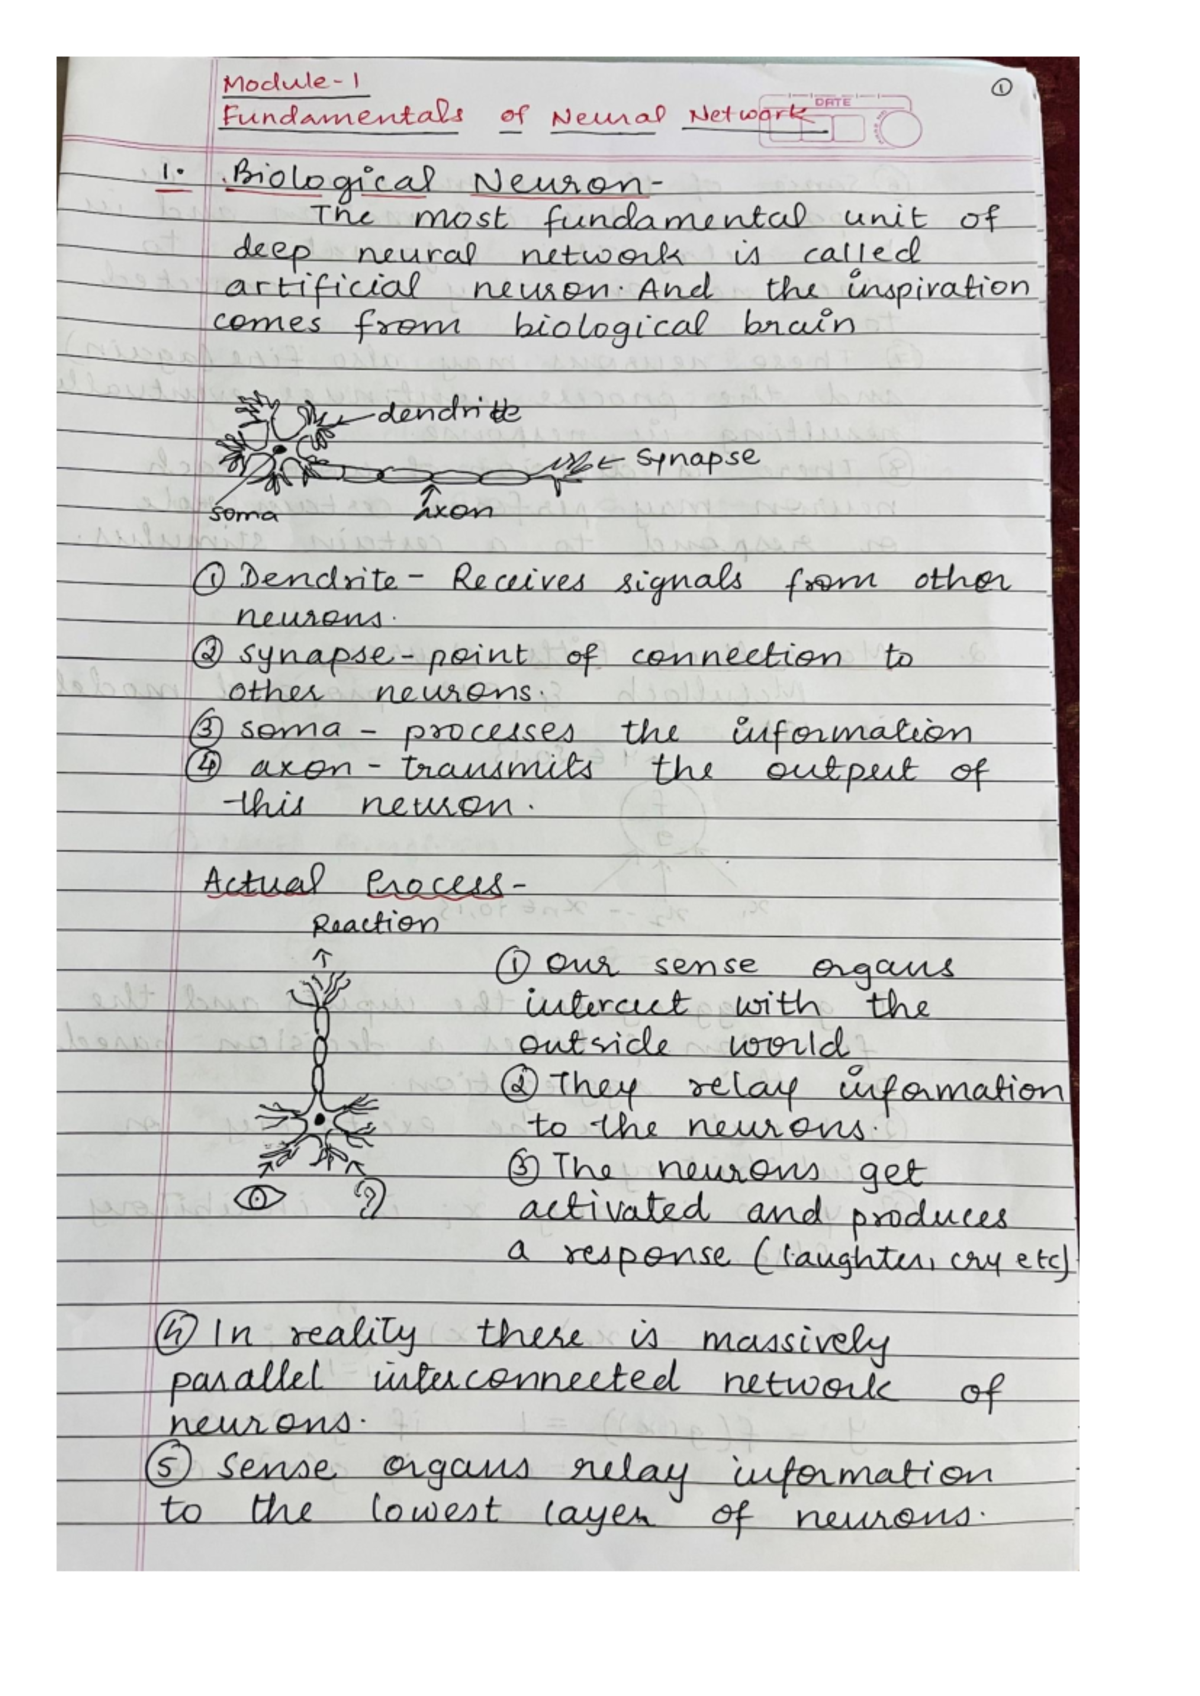 Module-1
①
Fundamentals of Neural Network
DATE
1. Biological Neuron-
The most fundamental unit of
deep neural network is called
artificial neuron. And the inspiration
comes from biological brain
dendrite
synapse
soma
Axon
① Dendrite - Receives signals from other
neurons.
② synapse - point of connection to
other neurons.
③ soma - processes the information
④ axon - transmits the output of
this neuron.
Actual Process-
Reaction
① our sense organs
interact with the
outside world
② They relay information
to the neurons.
③ The neurons get
activated and produces
a response (laughter, cry etc)
④ In reality there is massively
parallel interconnected network of
neurons.
⑤ sense organs relay information
to the lowest layer of neurons.